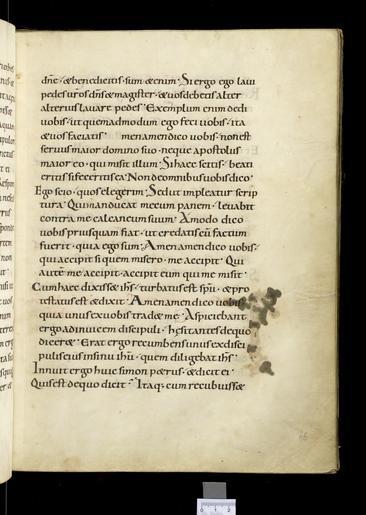 dne · & benedicitis · sum & enim · Si ergo ego laui
pedes uros dns & magister · & uos debetis alter
alterius lauare pedes · Exemplum enim dedi
uobis · ut quemadmodum ego feci uobis · ita
& uos faciatis · amen amen dico uobis · non est
seruus maior domino suo · neque apostolus
maior eo · qui misit illum · Si haec scitis · beati
eritis si feceritis ea · Non de omnibus uobis dico ·
Ego scio · quos elegerim · Sed ut impleatur scrip
tura · Qui manducat mecum panem · leuabit
contra me calcaneum suum · Amodo dico
uobis priusquam fiat · ut credatis cum factum
fuerit · quia ego sum · Amen amen dico uobis ·
qui accipit si quem misero · me accipit · Qui
autem me accipit · accipit eum qui me misit ·
Cum haec dixisset ihs · turbatus est spu · & pro
testatus est & dixit · Amen amen dico uobis
quia unus ex uobis tradet me · Aspiciebant
ergo ad inuicem discipuli · hesitantes de quo
diceret · Erat ergo recumbens unus ex disci
pulis eius in sinu ihu · quem diligebat ihs ·
Innuit ergo huic simon petrus · & dicit ei ·
Quis est de quo dicit · Itaq; cum recubuisset
66